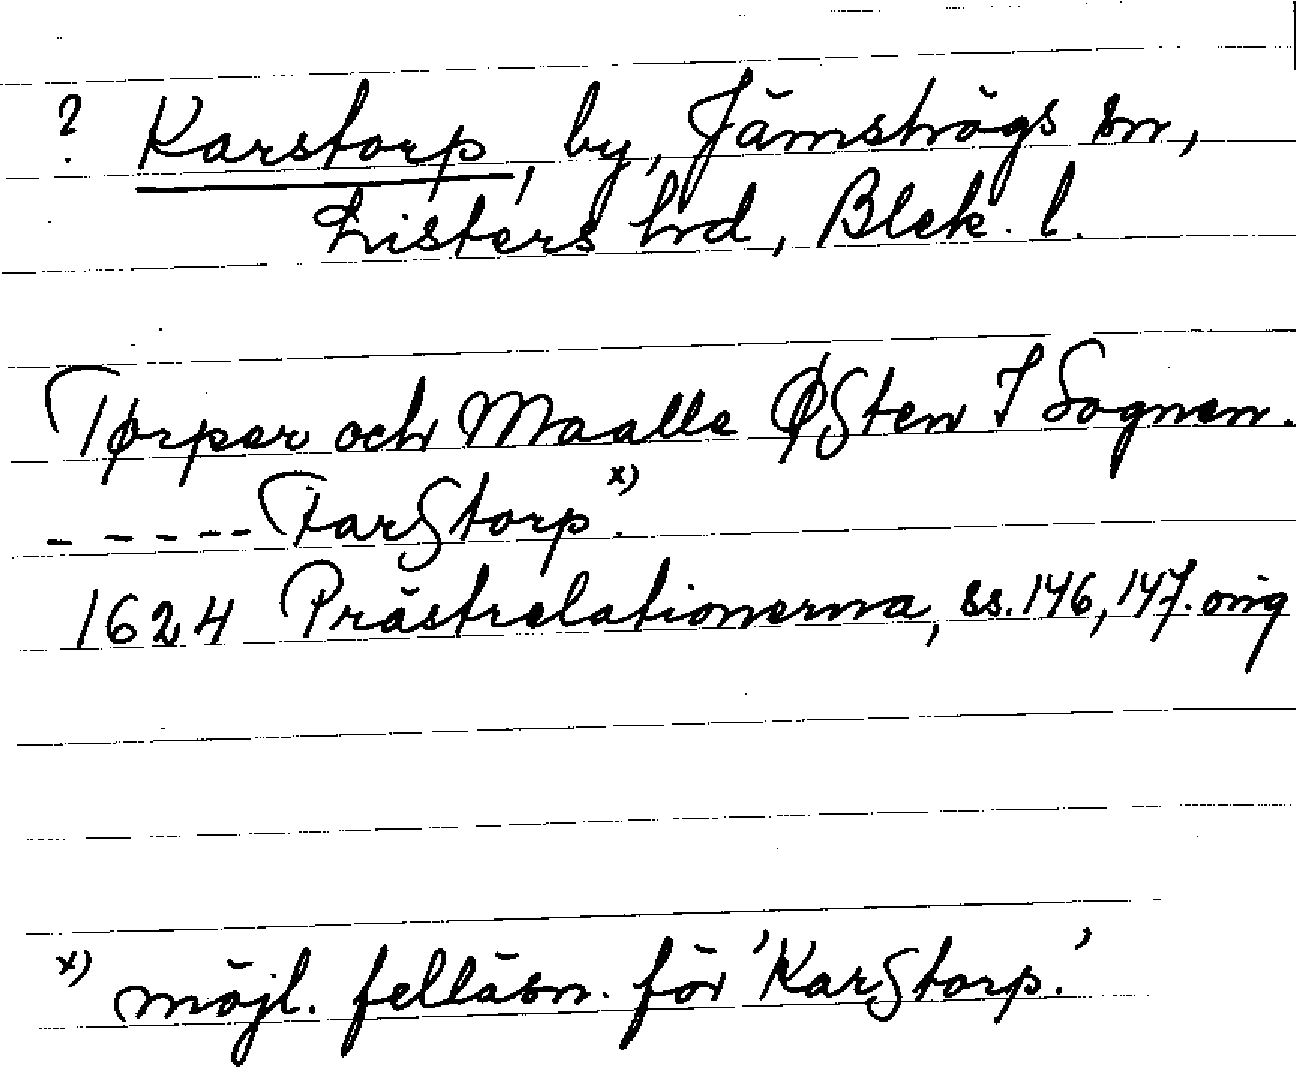 ? Karstorp, by, Jämshögs sn,
Listers hd, Blek. l.
Tørper och Maalle Østen I Sognen.
- - - - - Farßtorp x).
1624 Prästrelationerna, ss. 146, 147. orig
x) möjl. felläsn. för 'Karßtorp.'